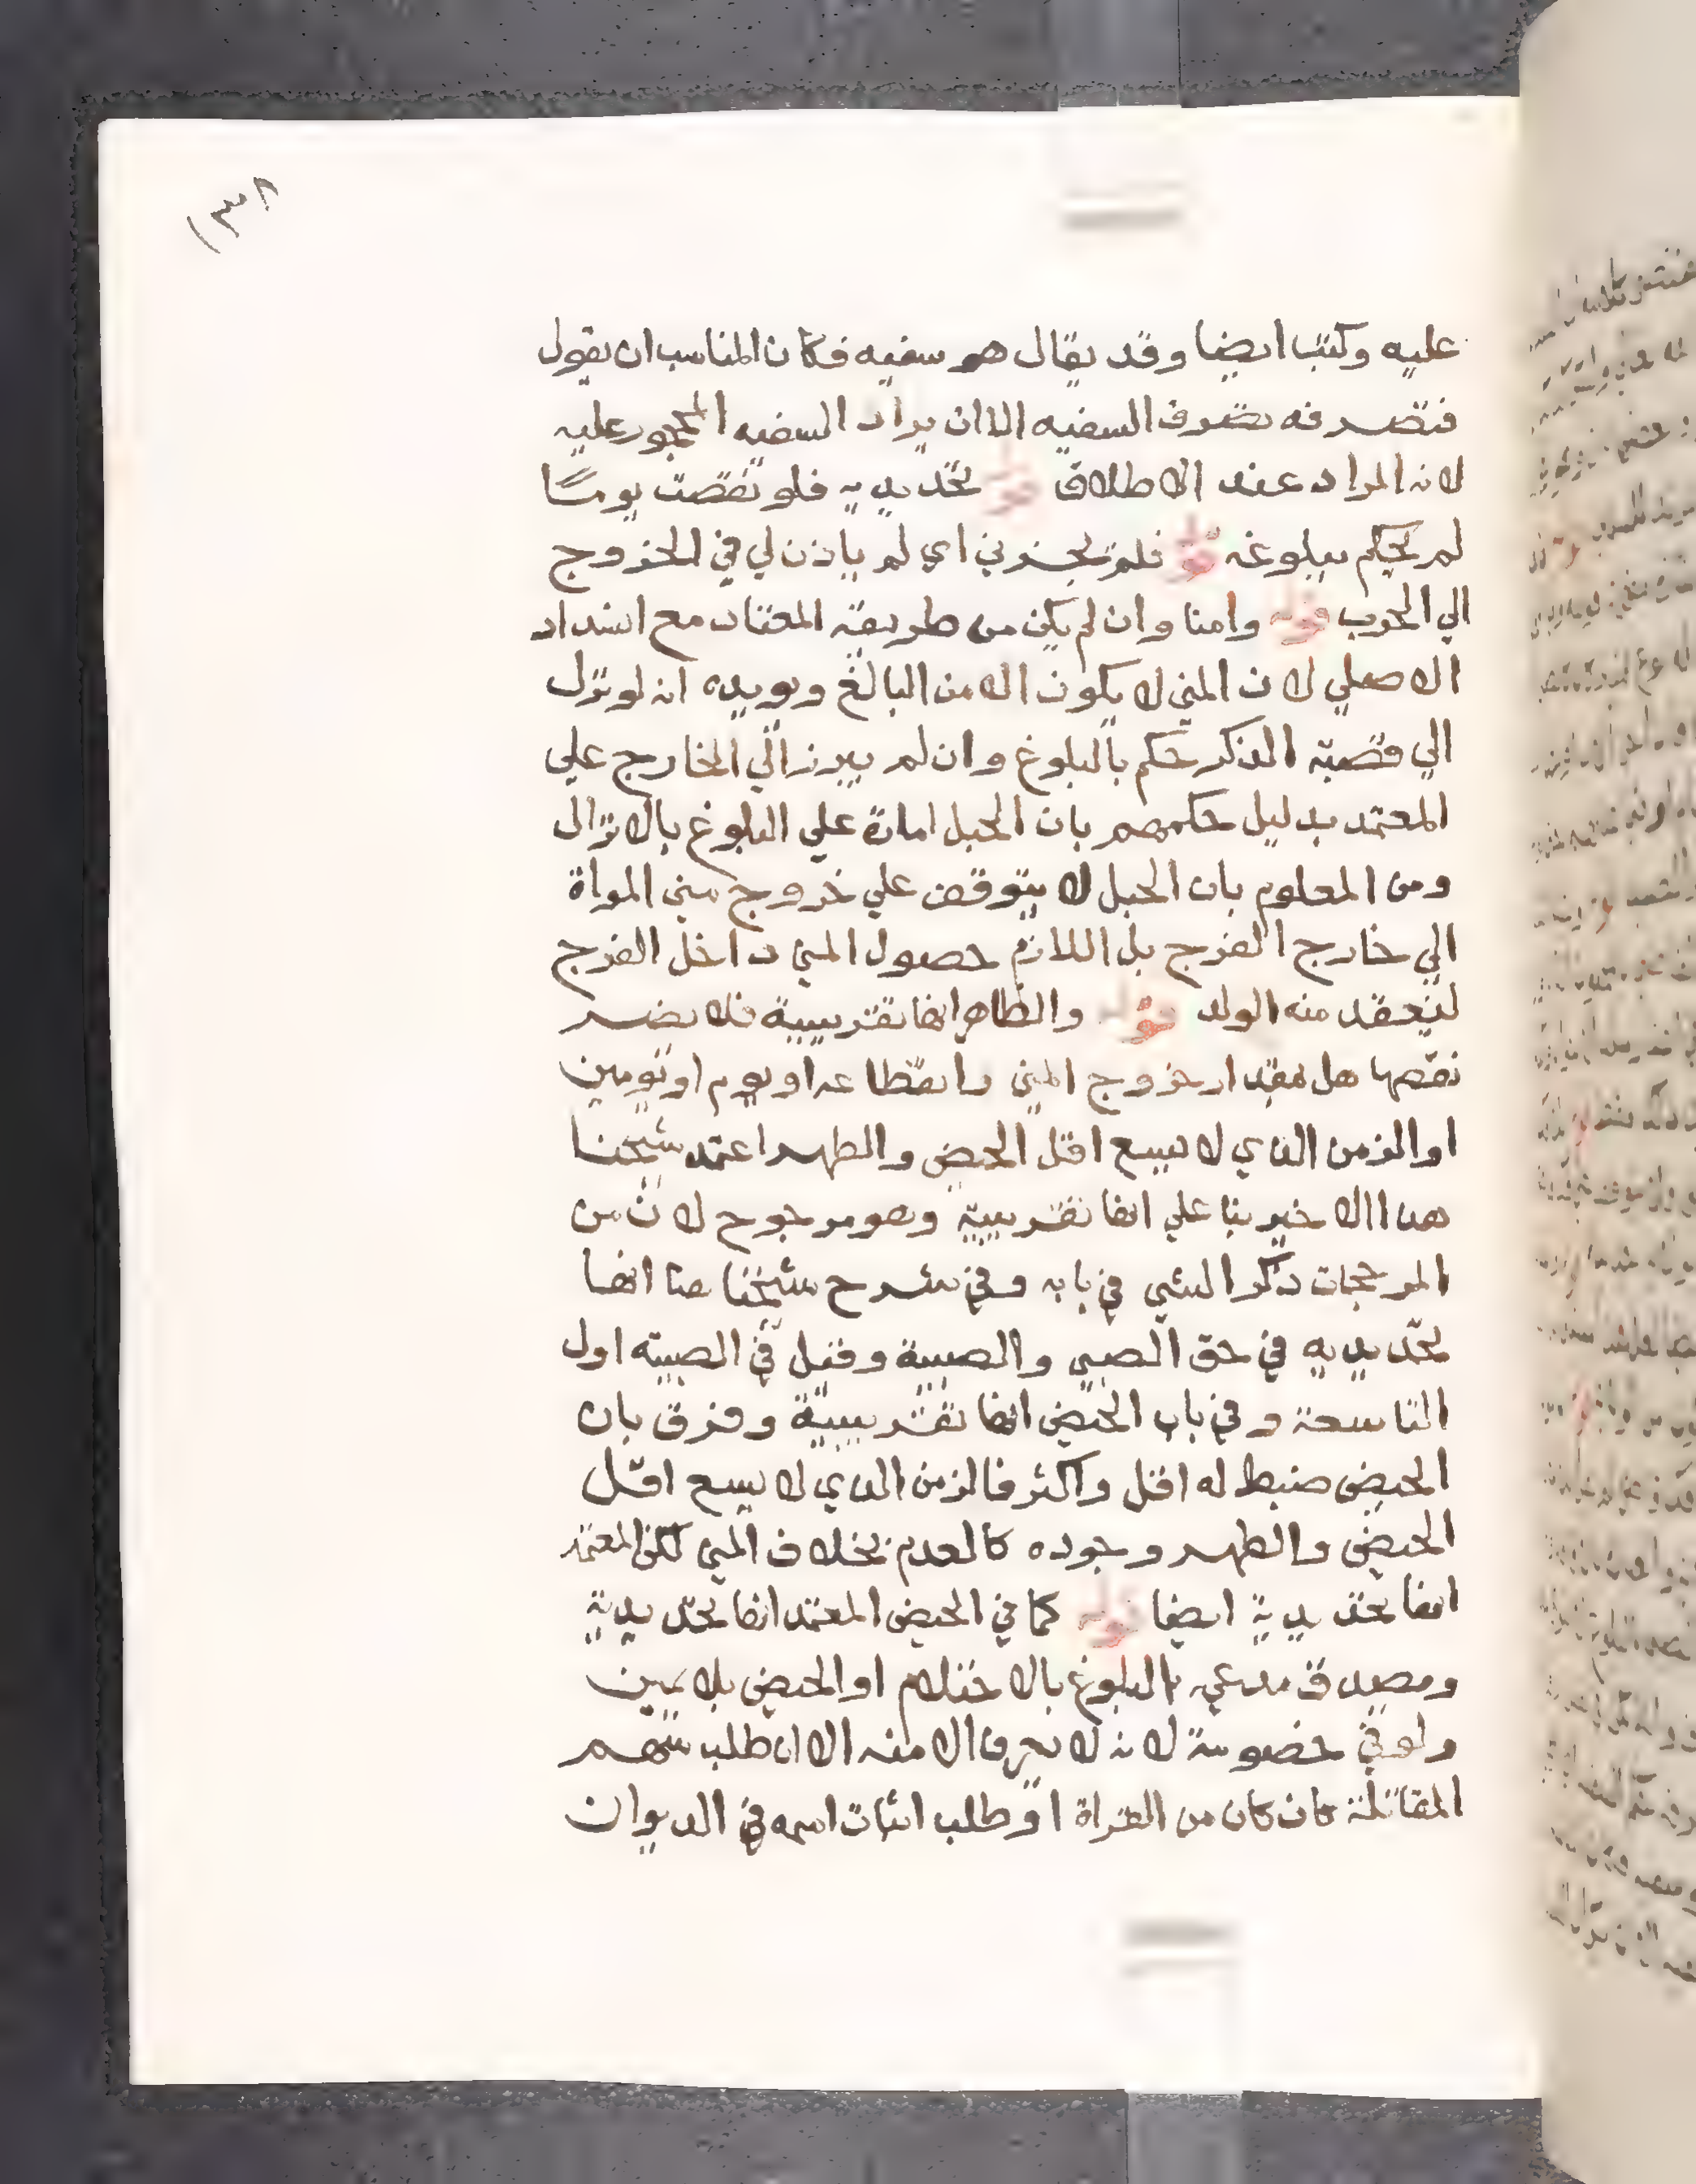 ١٣٨
عليه وكتب ايضا وقد يقال هو سفيه فكان المناسب ان يقول
فتصرفه تصرف السفيه الا ان يراد السفيه المحجور عليه
لانه المراد عند الاطلاق قوله تحديديه فلو نقصت يوما
لم يحكم ببلوغه قوله فلم يجزني اي لم ياذن لي في الخروج
الي الحرب قوله وامنا وان لم يكن من طريقه المعتاد مع انسداد
الاصلي لان المني لا يكون الا من البالغ ويويده انه لو نزل
الي قصبة الذكر حكم بالبلوغ وان لم يبرز الي الخارج علي
المعتمد بدليل حكمهم بان الحبل امارة علي البلوغ بالانزال
ومن المعلوم بان الحبل لا يتوقف علي خروج مني المراة
الي خارج الفرج بل اللازم حصول المني داخل الفرج
لينعقد منه الولد قوله والظاهر انها تقريبية فلا يضر
نقصها هل بمقدار خروج المني وانقطاعه او يوم او يومين
او الزمن الذي لا يسع اقل الحيض والطهر اعتمد شيخنا
هذا الاخير بنا علي انها تقريبية وهو مرجوح لان من
المرجحات ذكر الشي في بابه وفي شرح شيخنا هنا انها
تحديديه في حق الصبي والصبية وقيل في الصبية اول
التاسعة وفي باب الحيض انها تقريبية وفرق بان
الحيض ضبط له اقل واكثر فالزمن الذي لا يسع اقل
الحيض والطهر وجوده كالعدم بخلاف المني لكن المعتمد
انها تحديدية ايضا قوله كما في الحيض المعتمد انها تحديدية
ومصدق مدعي البلوغ بالاحتلام او الحيض بلا يمين
ولو في خصومة لانه لا يعرف الا منه الا ان طلب سهم
المقاتلة كان كان من الغزاة او طلب اثبات اسمه في الديوان